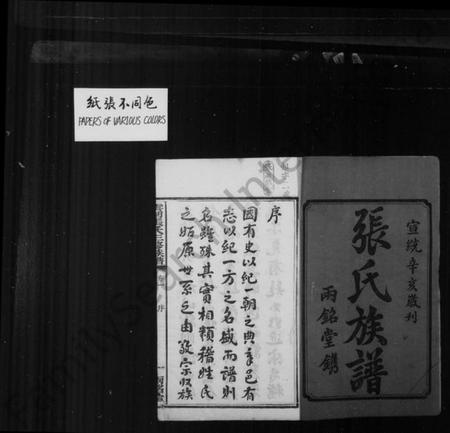 紙張不同色
PAPERS OF VARIOUS COLORS
宣統辛亥歲刊
張氏族譜
兩銘堂鐫
序
國有史以紀一朝之典章邑有
志以紀一方之名盛而譜則
名雖殊其實相類稽姓氏
之始原世系之由敦宗收族